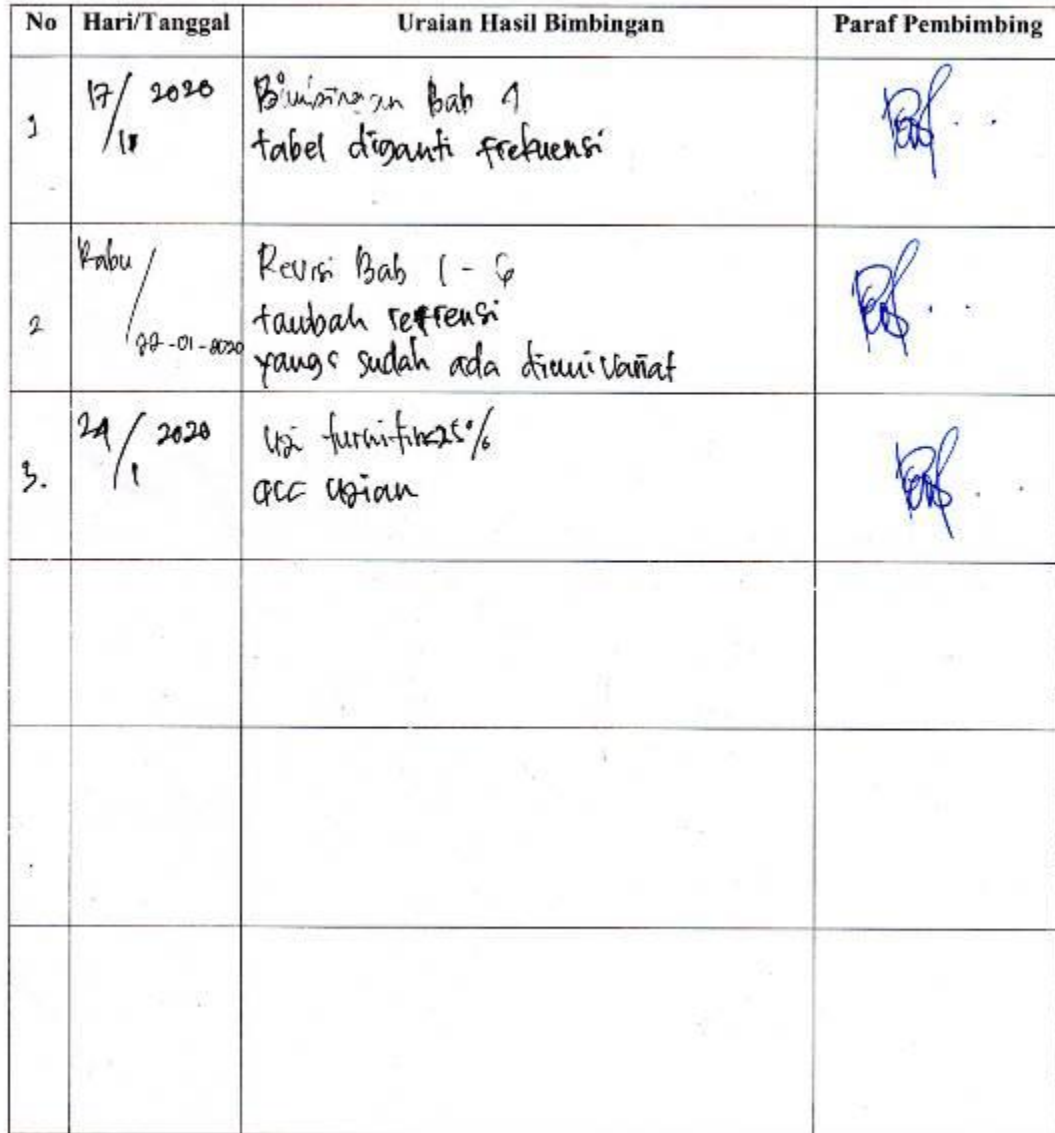 No Hari/Tanggal Uraian Hasil Bimbingan Paraf Pembimbing
1 17/ 2020 Bimbingan Bab 1
tabel diganti frekuensi
2 Rabu / 22-01-2020 Revisi Bab 1 - 6
tambah refrensi
yang sudah ada
3. 24/1 2020 Uji turnitin 25%
acc Ujian